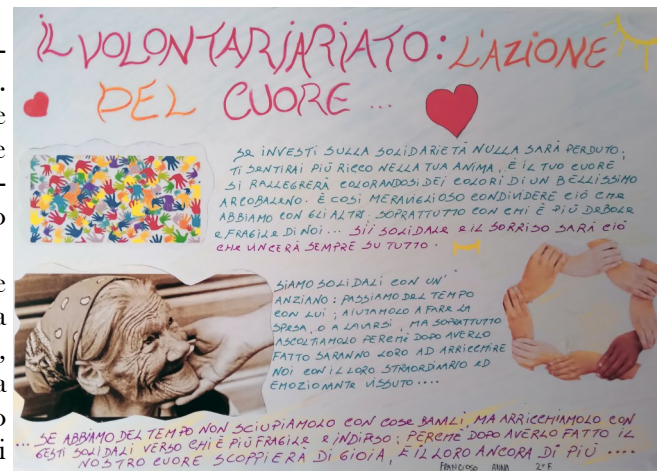 IL VOLONTARIARIATO: L'AZIONE
DEL CUORE ...
SE INVESTI SULLA SOLIDARIETÀ NULLA SARÀ PERDUTO;
TI SENTIRAI PIÙ RICCO NELLA TUA ANIMA, E IL TUO CUORE
SI RALLEGRERÀ COLORANDOSI DEI COLORI DI UN BELLISSIMO
ARCOBALENO. È COSÌ MERAVIGLIOSO CONDIVIDERE CIÒ CHE
ABBIAMO CON GLI ALTRI, SOPRATTUTTO CON CHI È PIÙ DEBOLE
E FRAGILE DI NOI... SII SOLIDALE E IL SORRISO SARÀ CIÒ
CHE VINCERÀ SEMPRE SU TUTTO.
SIAMO SOLIDALI CON UN'
ANZIANO: PASSIAMO DEL TEMPO
CON LUI, AIUTAMOLO A FARE LA
SPESA, O A LAVARSI, MA SOPRATTUTTO
ASCOLTIAMOLO PERCHÉ DOPO AVERLO
FATTO SARANNO LORO AD ARRICCHIRE
NOI CON IL LORO STRAORDINARIO ED
EMOZIONANTE VISSUTO....
... SE ABBIAMO DEL TEMPO NON SCIUPIAMOLO CON COSE BANALI, MA ARRICCHIAMOLO CON
GESTI SOLIDALI VERSO CHI È PIÙ FRAGILE E INDIFESO; PERCHÉ DOPO AVERLO FATTO IL
NOSTRO CUORE SCOPPIERÀ DI GIOIA, E IL LORO ANCORA DI PIÙ ....
FRANCIOSO ANNA 2ªF